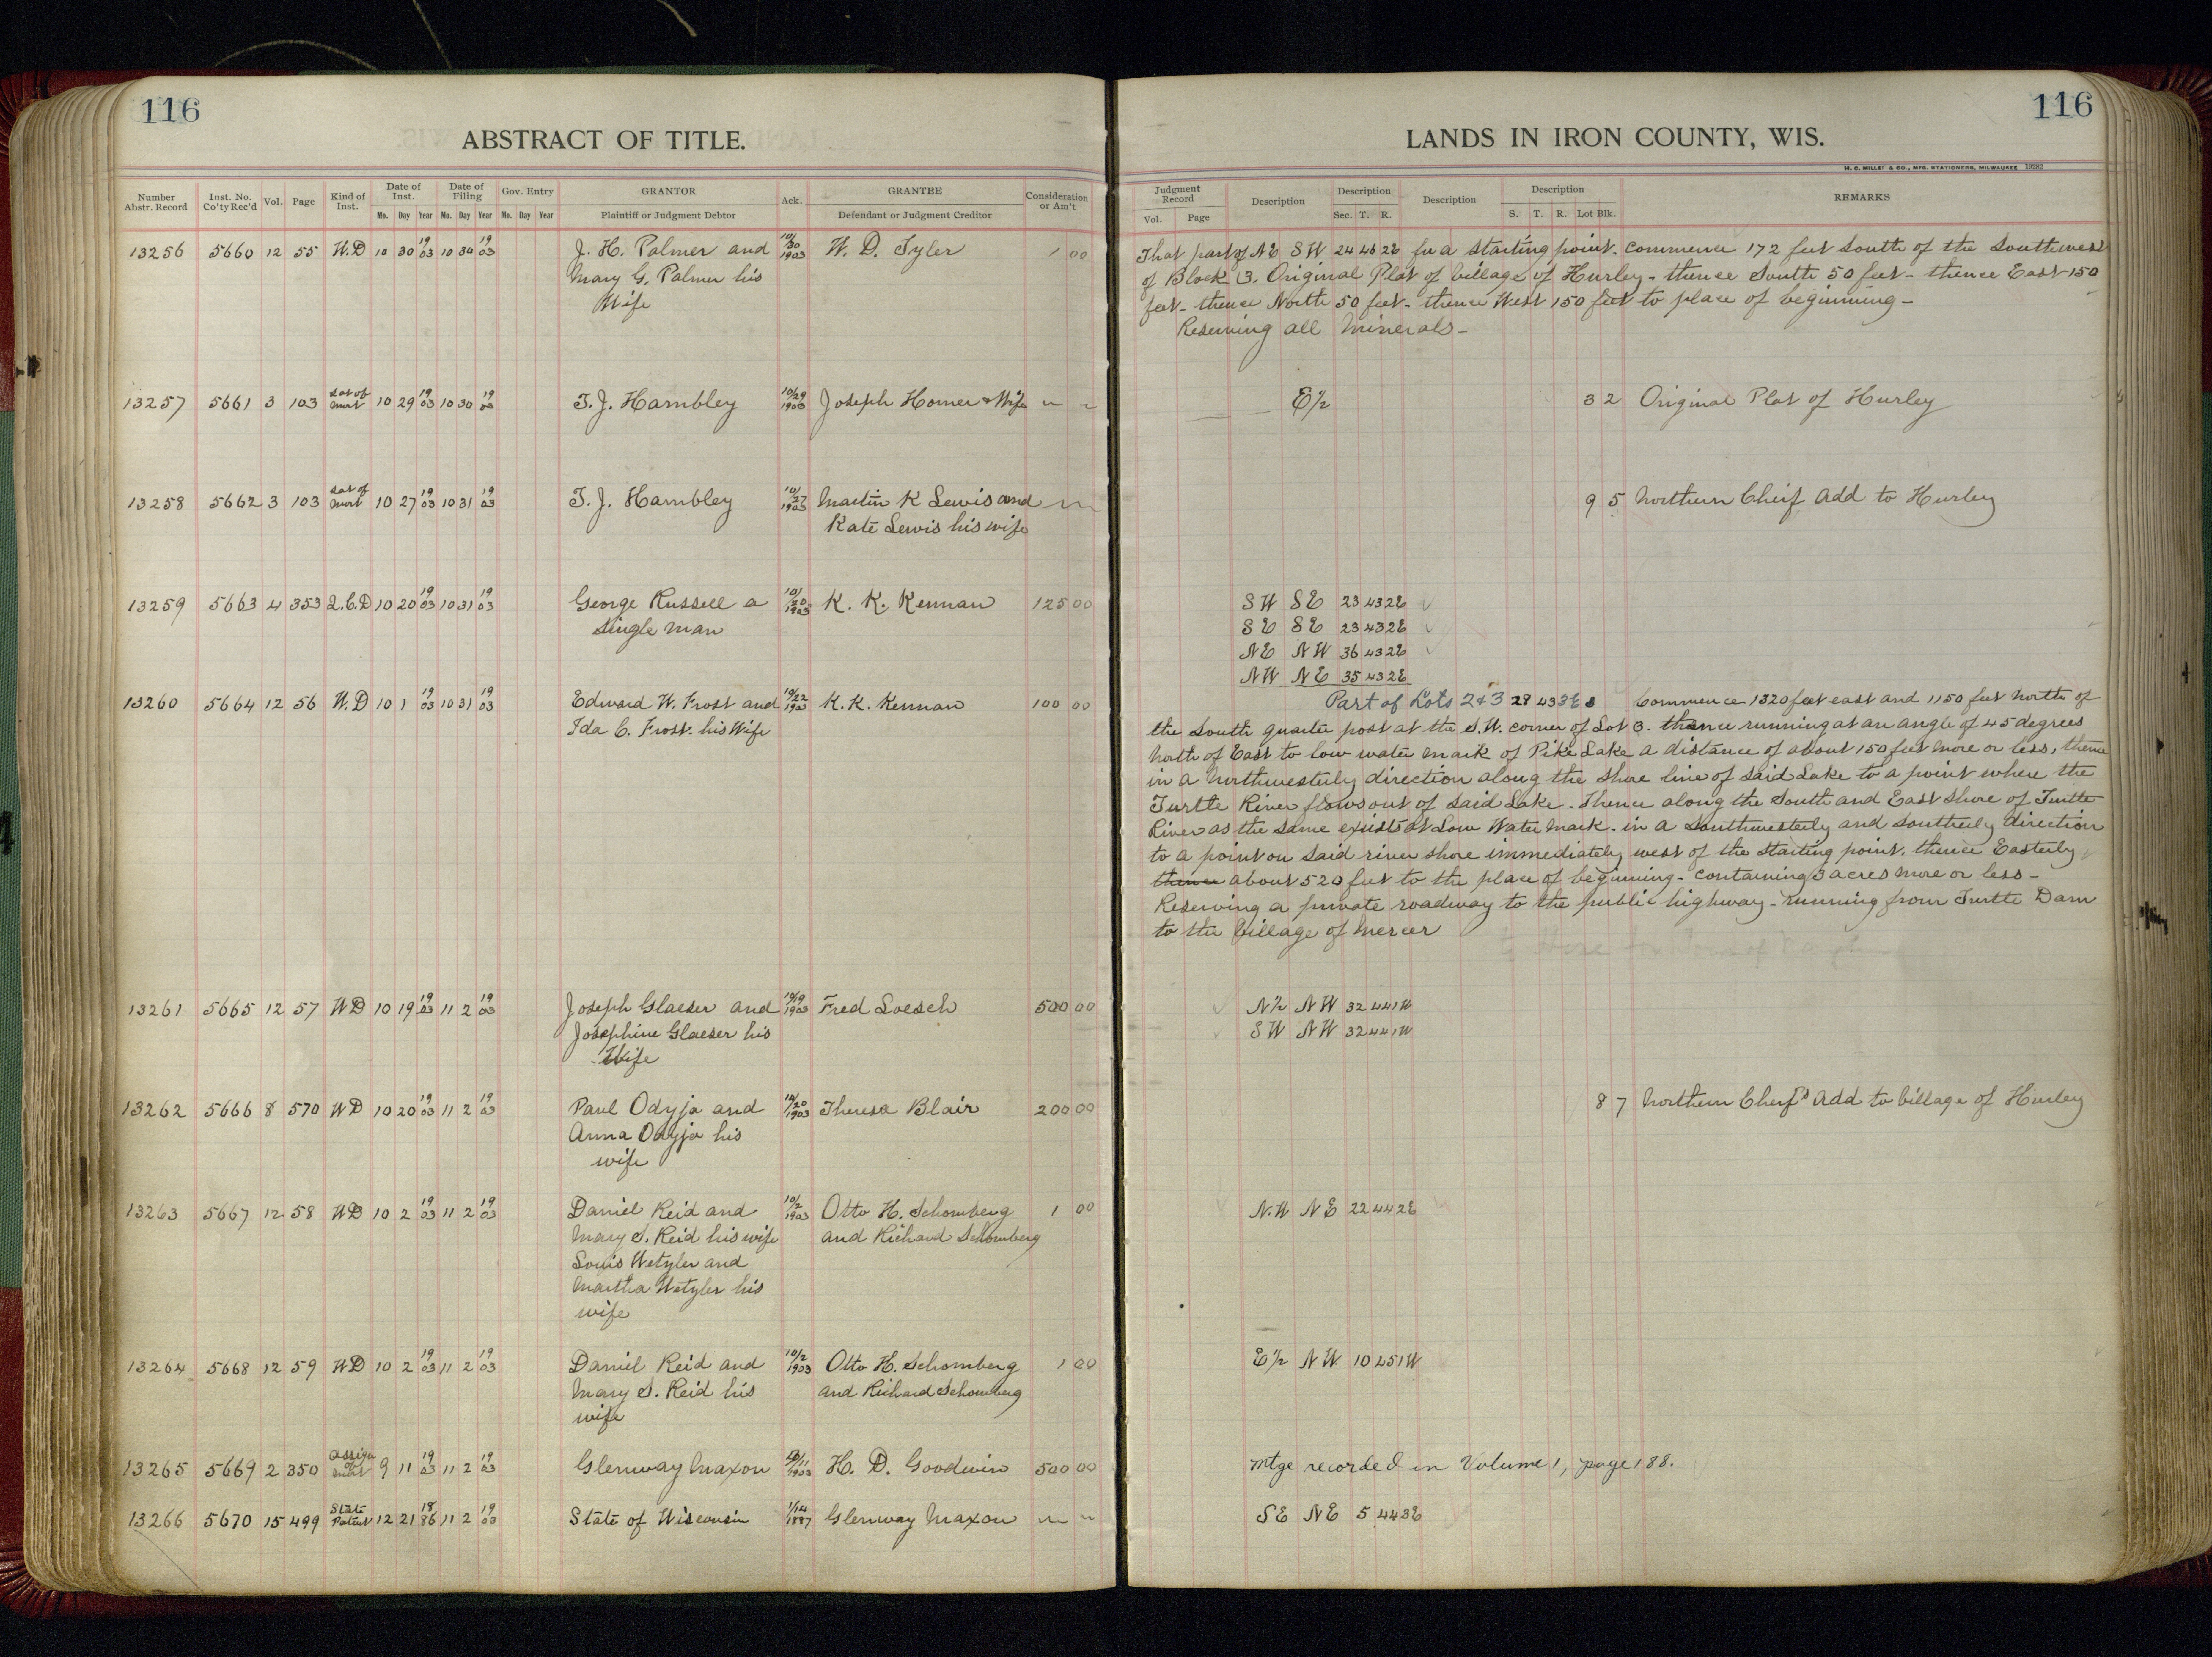 116
ABSTRACT OF TITLE.
Number Abstr. Record | Inst. No. Co'ty Rec'd | Vol. | Page | Kind of Inst. | Date of Inst. Mo. Day Year | Date of Filing Mo. Day Year | Gov. Entry Mo. Day Year | GRANTOR Plaintiff or Judgment Debtor | Ack. | GRANTEE Defendant or Judgment Creditor | Consideration or Am't
13256 5660 12 55 W.D 10 30 19 03 10 30 19 03 J. H. Palmer and 10/30 1903 W. D. Tyler 1 00
Mary G. Palmer his
Wife
13257 5661 3 103 Sat of Mort 10 29 19 03 10 30 19 03 T. J. Hambley 10/29 1903 Joseph Homer & Wife
13258 5662 3 103 Sat of Mort 10 27 19 03 10 31 19 03 T. J. Hambley 10/27 1903 Martin K Lewis and
Kate Lewis his wife
13259 5663 4 353 Q.C.D 10 20 19 03 10 31 19 03 George Russell a 10/20 1903 K. K. Kennan 125 00
single man
13260 5664 12 56 W.D 10 1 19 03 10 31 19 03 Edward W. Frost and 10/22 1903 K. K. Kennan 100 00
Ida C. Frost. his Wife
13261 5665 12 57 WD 10 19 19 03 11 2 19 03 Joseph Glaeser and 10/19 1903 Fred Loesch 500 00
Josephine Glaeser his
Wife
13262 5666 8 570 WD 10 20 19 03 11 2 19 03 Paul Odyja and 10/20 1903 Theresa Blair 200 00
Anna Odyja his
wife
13263 5667 12 58 WD 10 2 19 03 11 2 19 03 Daniel Reid and 10/2 1903 Otto H. Schomberg 1 00
Mary S. Reid his wife and Richard Schomberg
Louis Wetzler and
Martha Wetzler his
wife
13264 5668 12 59 WD 10 2 19 03 11 2 19 03 Daniel Reid and 10/2 1903 Otto H. Schomberg 1 00
Mary S. Reid his and Richard Schomberg
wife
13265 5669 2 350 Assign of Mort 9 11 19 03 11 2 19 03 Glenway Maxon 9/11 1903 H. D. Goodwin 500 00
13266 5670 15 499 State Patent 12 21 18 86 11 2 19 03 State of Wisconsin 1/14 1887 Glenway Maxon
116
LANDS IN IRON COUNTY, WIS.
H. C. MILLER & CO., MFG. STATIONERS, MILWAUKEE
Judgment Record Vol. Page | Description | Description Sec. T. R. | Description | Description S. T. R. Lot Blk. | REMARKS
That part of NE SW 24 46 2E for a starting point. commence 172 feet South of the Southwest
of Block 3. Original Plat of Village of Hurley - thence South 50 feet - thence East 150
feet - thence North 50 feet - thence West 150 feet to place of beginning -
Reserving all Minerals -
E½ 3 2 Original Plat of Hurley
9 5 Northern Cheif Add to Hurley
SW SE 23 43 2E
SE SE 23 43 2E
NE NW 36 43 2E
NW NE 35 43 2E
Part of Lots 2 & 3 28 43 3E Commence 1320 feet east and 1150 feet north of
the South quarter post at the S.W. corner of Lot 3. thence running at an angle of 45 degrees
North of East to low water mark of Pike Lake a distance of about 150 feet more or less, thence
in a northwesterly direction along the shore line of said Lake to a point where the
Turtle River flows out of said Lake. Thence along the South and East shore of Turtle
River as the same exists at Low Water Mark. in a Southwesterly and southerly direction
to a point on said river shore immediately west of the starting point. thence Easterly
thence about 520 feet to the place of beginning - containing 3 acres more or less -
Reserving a private roadway to the public highway - running from Turtle Dam
to the Village of Mercer
N½ NW 32 44 1W
SW NW 32 44 1W
8 7 Northern Cheif's Add to Village of Hurley
N.W NE 22 44 2E
E½ NW 10 45 1W
Mtge recorded in Volume 1, page 188.
SE NE 5 44 3E